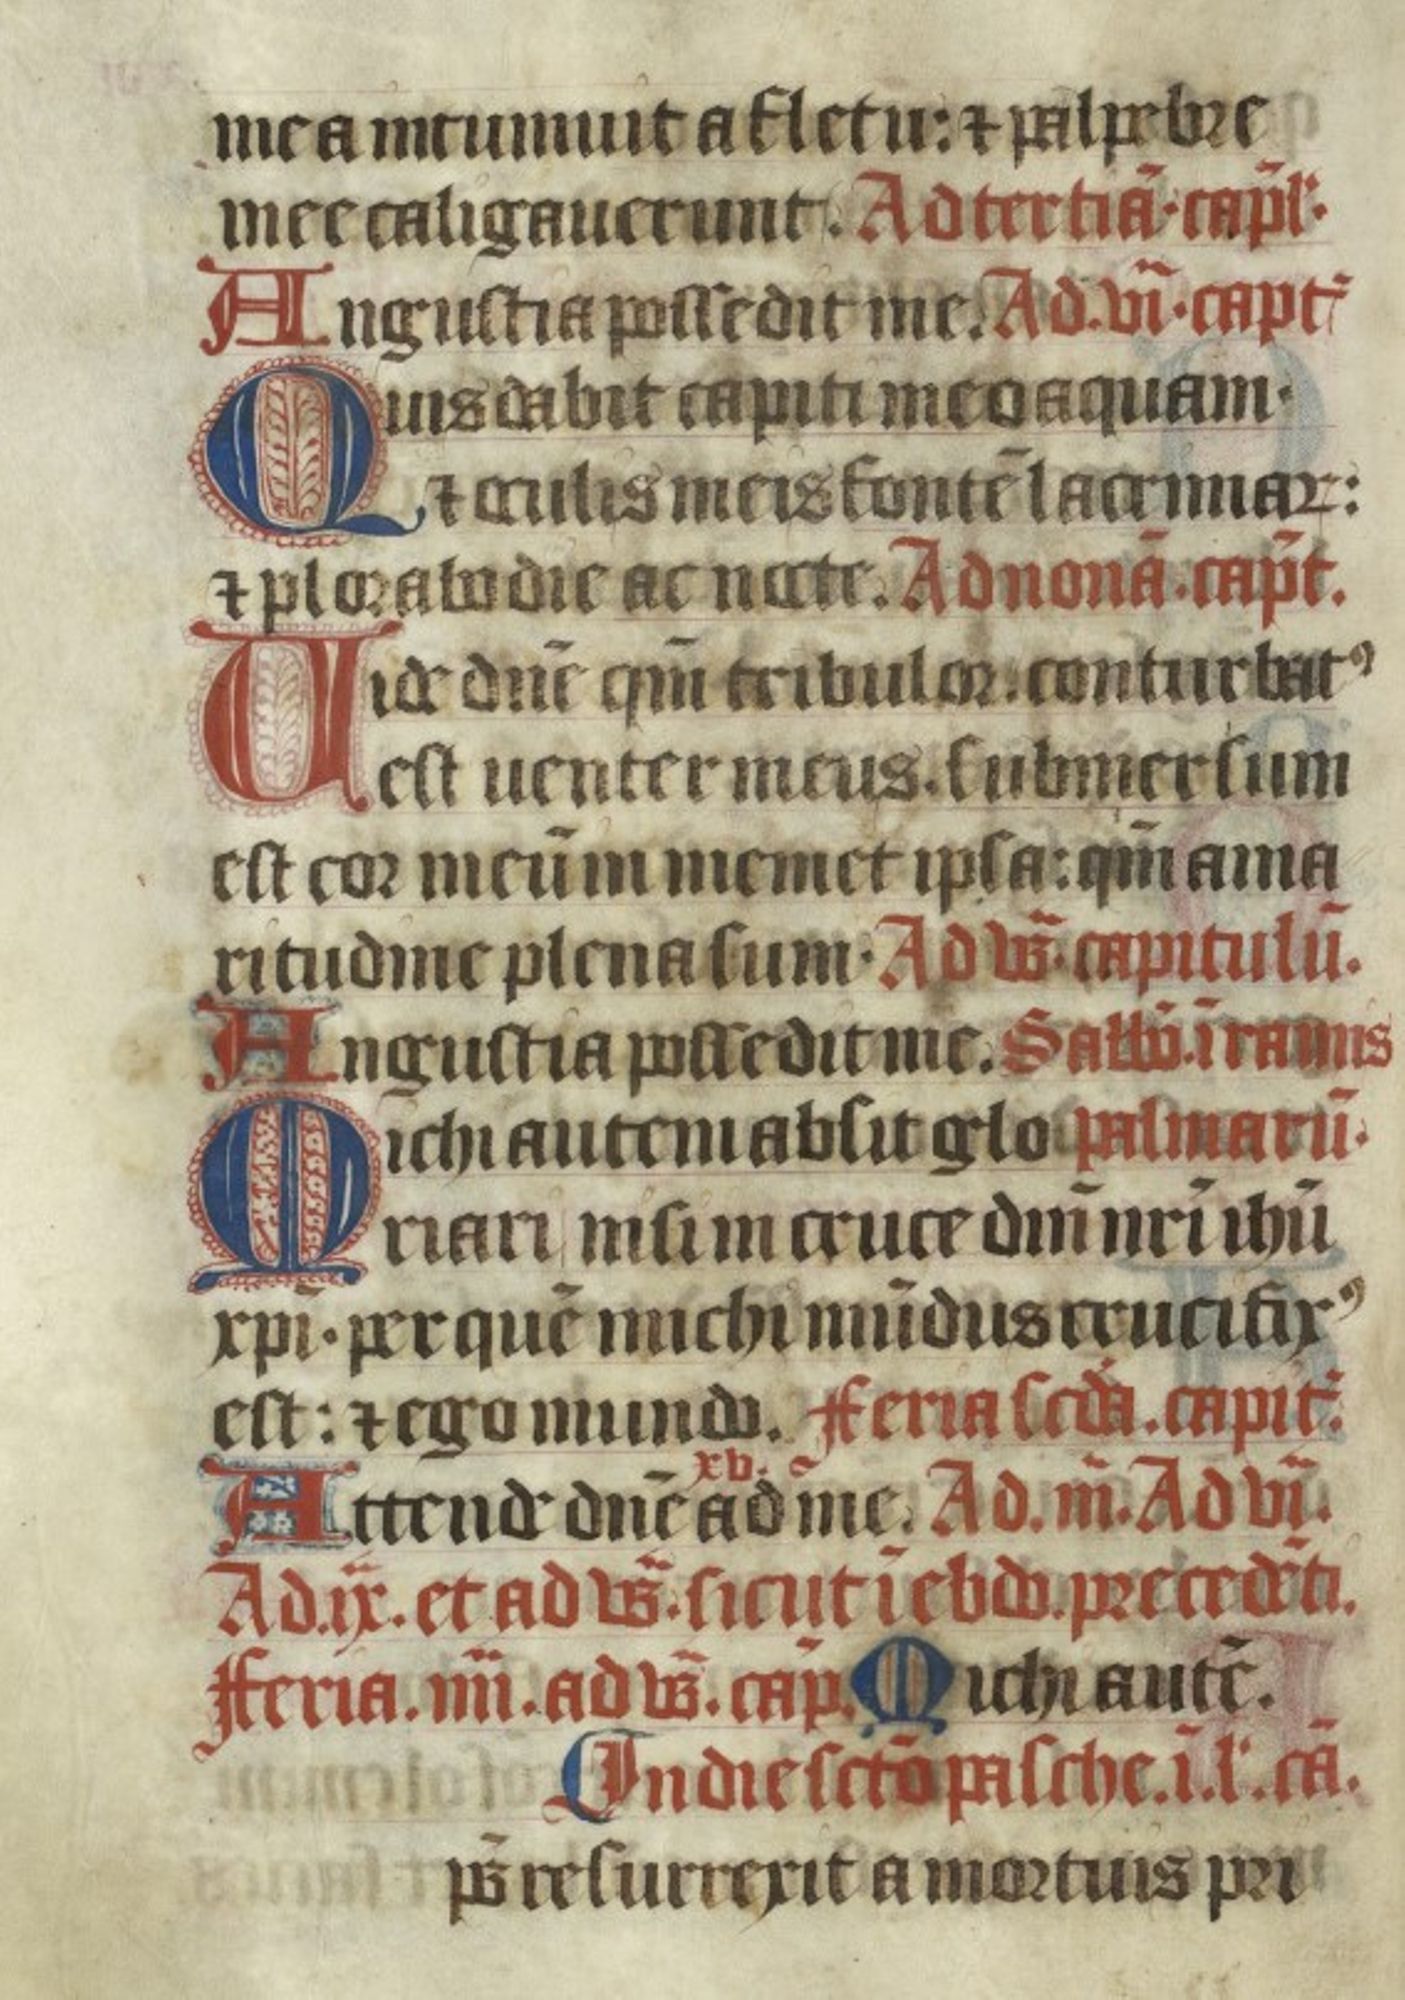 mea intumuit a fletu: ⁊ palpebre
mee caligauerunt. Ad tertiā. capl̄'.
Angustia possedit me. Ad. vī. capt̄
Quis dabit capiti meo aquam.
⁊ oculis meis fontē lacrimaꝝ:
⁊ plorabo die ac nocte. Ad nonā. capt̄.
Uide dn̄e qm̄ tribulor. conturbatꝰ
est uenter meus. submersum
est cor meūm in memet ipsa: qm̄ ama
ritudine plena sum. Ad vs̄. capitulū.
Angustia possedit me. Sabb̄o. ī ramis
Michi autem absit glo palmarū.
riari nisi in cruce dn̄i nr̄i ihū
xp̄i. per quē michi mūdus crucifixꝰ
est: ⁊ ego mundo. Feria scd̄a. capit̄.
xv.
Attende dn̄e ad me. Ad. iiī. Ad vī.
Ad. ix̄. et ad vs̄. sicut ī ebdo. precedēti.
Feria. iiii. ad vs̄. cap̄. Michi autē.
In die sct̄o pasche. ī. l'. cā.
ps̄ resurrexit a mortuis pri